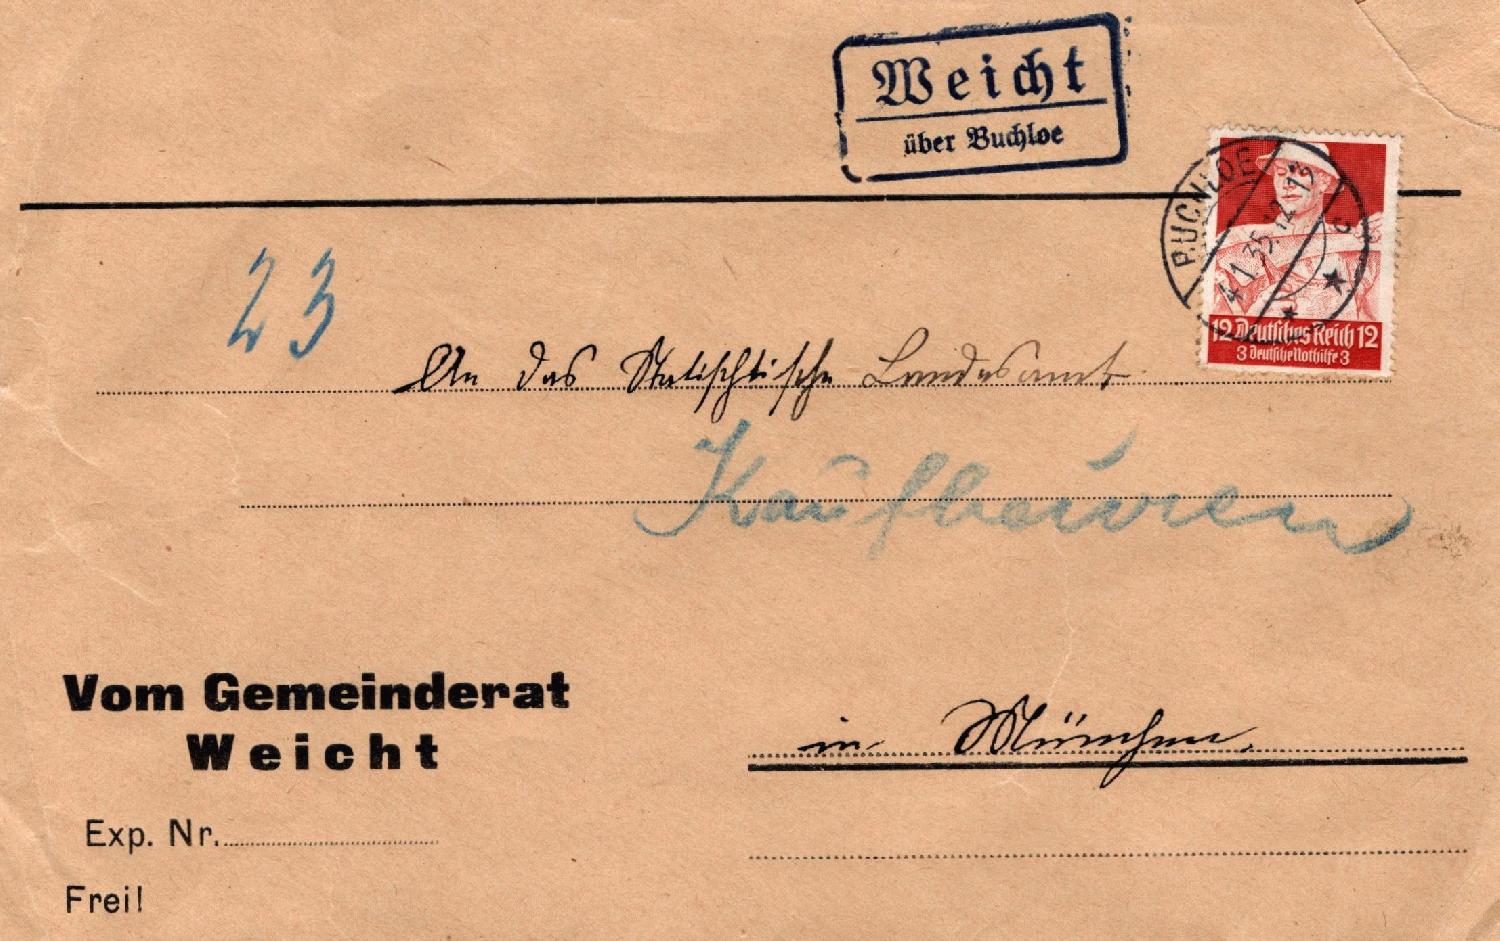 Weicht
über Buchloe
BUCHLOE
4.1.35.12-13
c
12 Deutsches Reich 12
3 Deutsche Nothilfe 3
23
An das Statischtische Landesamt
Kaufbeuren
Vom Gemeinderat
Weicht
in München.
Exp. Nr.
Frei!